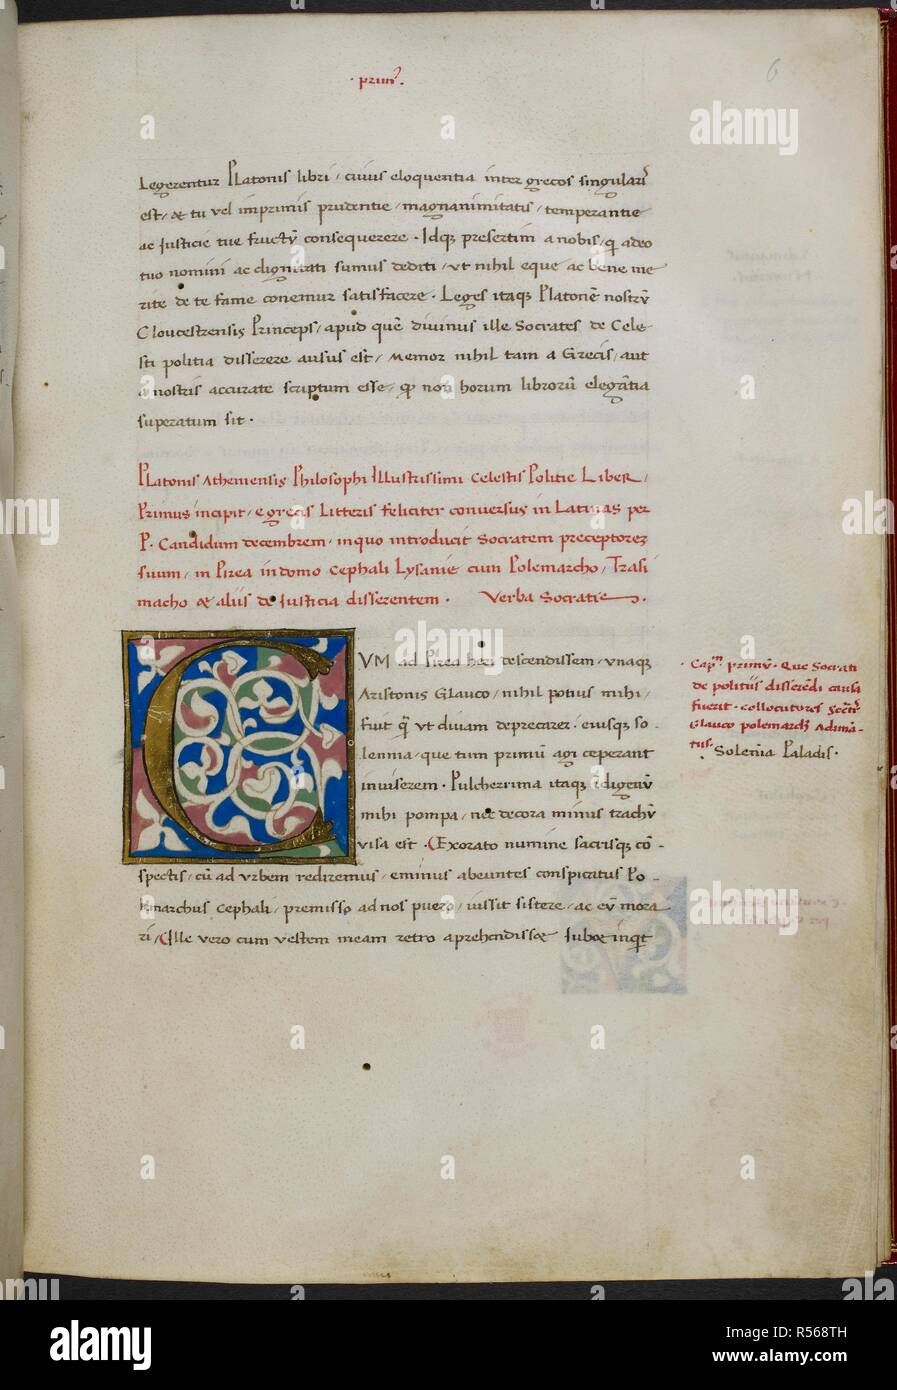 · prim᾽.
6
Legerentur Platonis libri / cuius eloquentia inter grecos singularis
est / & tu vel imprimis prudentie / magnanimitatis / temperantie
ac justicie tue fructũ consequerere · Idqȝ presertim a nobis / qͥ adeo
tuo nomini ac dignitati sumus dediti / ut nihil eque ac bene me
rite de te fame conemur satisfacere · Leges itaqȝ Platonẽ nostrũ
Gloucestrensis Princeps / apud quẽ divinus ille Socrates de Cele-
sti politia disserere ausus est / Memor nihil tam a Grecis / aut
a nostris accurate scriptum esse / qͩ non horum librorũ elegãtia
superatum sit ·
Platonis Atheniensis Philosophi Illustrissimi Celestis Politie Liber /
Primus incipit / e grecis Litteris feliciter conversus in Latinas per
P. Candidum decembrem / in quo introducit Socratem preceptorem
suum / in Pirea in domo Cephali Lysanie cum Polemarcho / Trasi
macho & aliis de justicia disserentem . Verba Socratis .
CUM ad Pirea heri descendissem / unaqȝ
Aristonis Glauco / nihil potius mihi /
fuit qͣ ut divam deprecarer / eiusqȝ so -
lennia / que tum primũ agi ceperant
inviserem · Pulcherrima itaqȝ indigenũ
mihi pompa / nec decora minus trachũ
visa est · Exorato numine sacrisqȝ cõ -
spectis / cũ ad urbem rediremus / eminus abeuntes conspicatus Po -
lemarchus Cephali / premisso ad nos puero / iussit sistere / ac eũ mora
ri / Ille vero cum vestem meam retro aprehendisset Jubet inquit
· Capᵐ. primũ · Que Socrati
de politiis disserẽdi causa
fuerit · collocutores Socͭr
Glauco polemarcͪ Adima-
tus.
Solenia Paladis ·
alamy stock photo
alamy
Image ID: R568TH
www.alamy.com